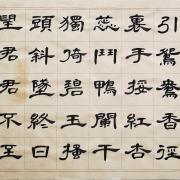 引鴛鴦香徑
裏手挼紅杏
蕊鬥鴨闌干
獨倚碧玉搔
頭斜墜終日
望君君不至